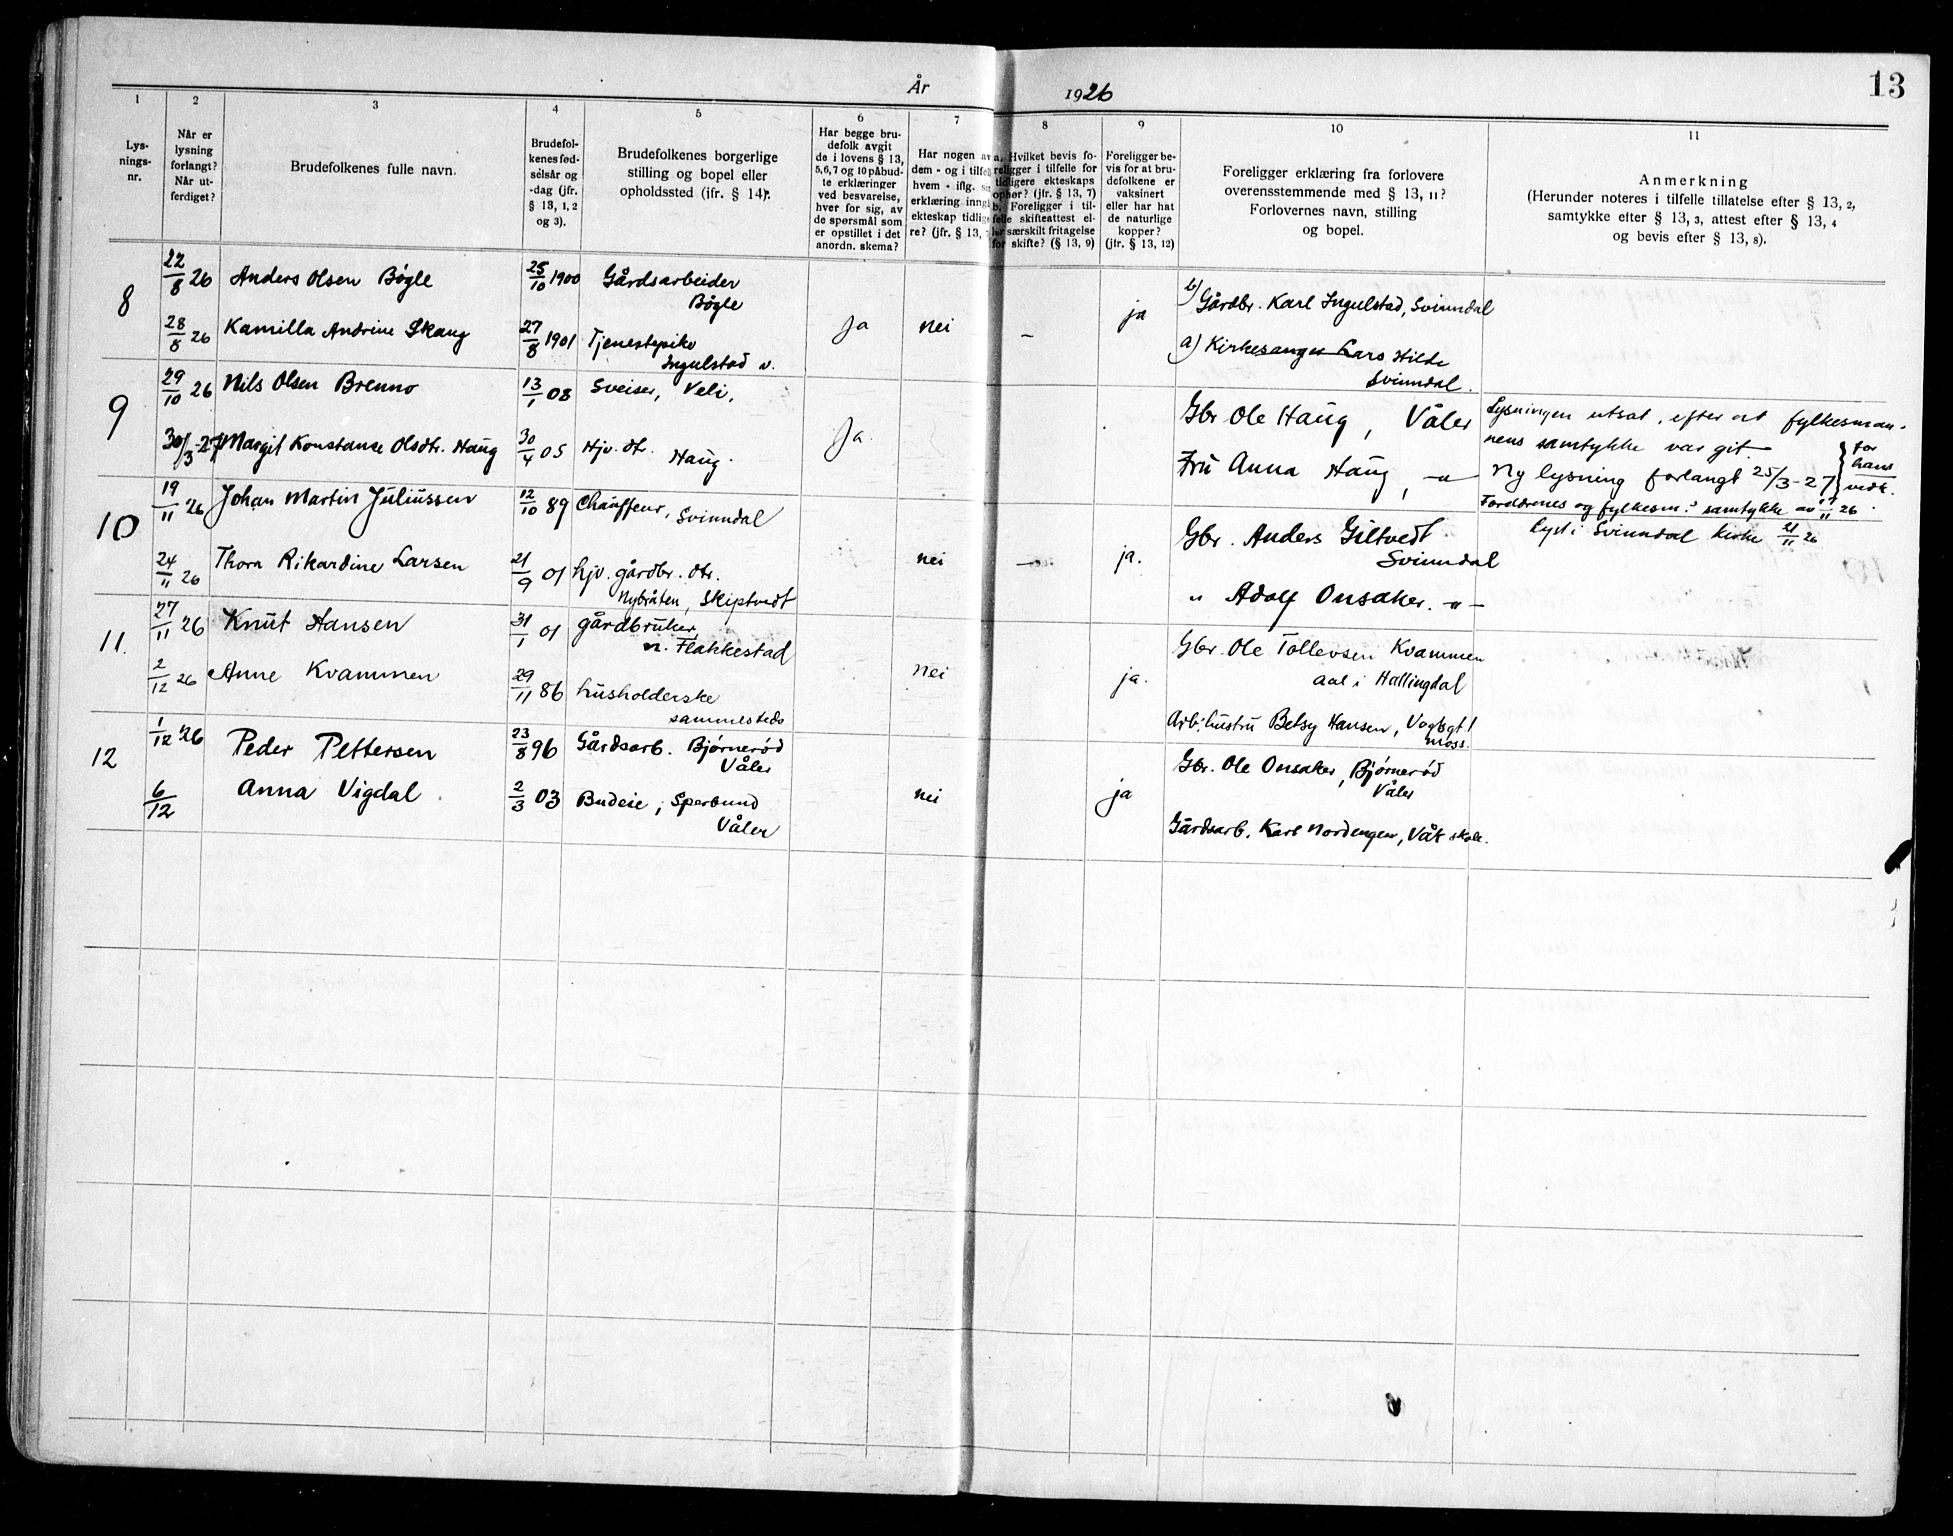 År 1926
13
1 2 3 4 5 6 7 8 9 10 11
Lys-
nings-
nr.
Når er
lysning
forlangt?
Når ut-
ferdiget?
Brudefolkenes fulle navn.
Brudefol-
kenes fød-
selsår og
-dag (jfr.
§ 13, 1, 2
og 3).
Brudefolkenes borgerlige
stilling og bopel eller
opholdssted (jfr. § 14).
Har begge bru-
defolk avgit
de i lovens § 13,
5, 6, 7 og 10 påbud-
te erklæringer
ved besvarelse,
hver for sig, av
de spørsmål som
er opstillet i det
anordn. skema?
Har nogen av
dem - og i tilfell
hvem - iflg. s
erklæring inng
ekteskap tidlig
re? (jfr. § 13,
a. Hvilket bevis fo-
religger i tilfelle for
tidligere ekteskaps
ophør? (jfr. § 13, 7)
b. Foreligger i til-
felle skifteattest el-
ler særskilt fritagelse
for skifte? (§ 13, 9)
Foreligger be-
vis for at bru-
defolkene er
vaksinert
eller har hat
de naturlige
kopper?
(jfr. § 13, 12)
Foreligger erklæring fra forlovere
overensstemmende med § 13, 11?
Forlovernes navn, stilling
og bopel.
Anmerkning
(Herunder noteres i tilfelle tillatelse efter § 13, 2,
samtykke efter § 13, 3, attest efter § 13, 4
og bevis efter § 13, 8).
8
22/8 26 Anders Olsen Bøgle 25/10 1900 Gårdsarbeider
Bøgle
b) Gårdbr. Karl Ingulstad, Svinndal
28/8 26 Kamilla Andrine Skaug 27/8 1901 Tjenestepike
Ingulstad v.
Ja nei – ja
a) Kirkesanger Lars Hilde
Svinndal.
9
29/10 26 Nils Olsen Brenno 13/1 08 Sveiser, Veli,
Gbr Ole Haug, Våler
Lysningen utsat, efter at fylkesman-
nens samtykke var git.
30/3-27 Margit Konstanse Olsdtr. Haug 30/4 05 Hjv. dtr.
Haug.
Ja.
Fru Anna Haug, –"–
Ny lysning forlangt 25/3-27 } for
hans
vedk.
10
19/11 26 Johan Martin Juliussen 12/10 89 Chauffeur, Svinndal
Gbr. Anders Giltvedt
Svinndal
Foreldrenes og fylkesm.s samtykke av 11 26.
lyst i Svinndal kirke 21/11 26
24/11 26 Thora Rikardine Larsen 21/9 01 hjv. gårdbr. dtr.
Nybråten, Skiptvedt
nei – ja.
" Adolf Onsaker. –"–
11.
27/11 26 Knut Hansen 31/1 01 gårdbruker,
n. Flakkestad
Gbr. Ole Tollevsen Kvammen
Aal i Hallingdal
2/12 26 Anne Kvammen 29/11 86 husholderske
sammesteds
nei ja.
Arb. hustru Betsy Hansen, Vogtsgt 1
Moss.
12
1/12 26 Peder Pettersen 23/8 96 Gårdsarb. Bjørnerød
Våler
Gbr. Ole Onsaker, Bjørnerød
Våler
6/12 Anna Vigdal. 2/3 03 Budeie, Sperbund
Våler
nei ja
Gårdsarb. Karl Nordengen, Våk skole.